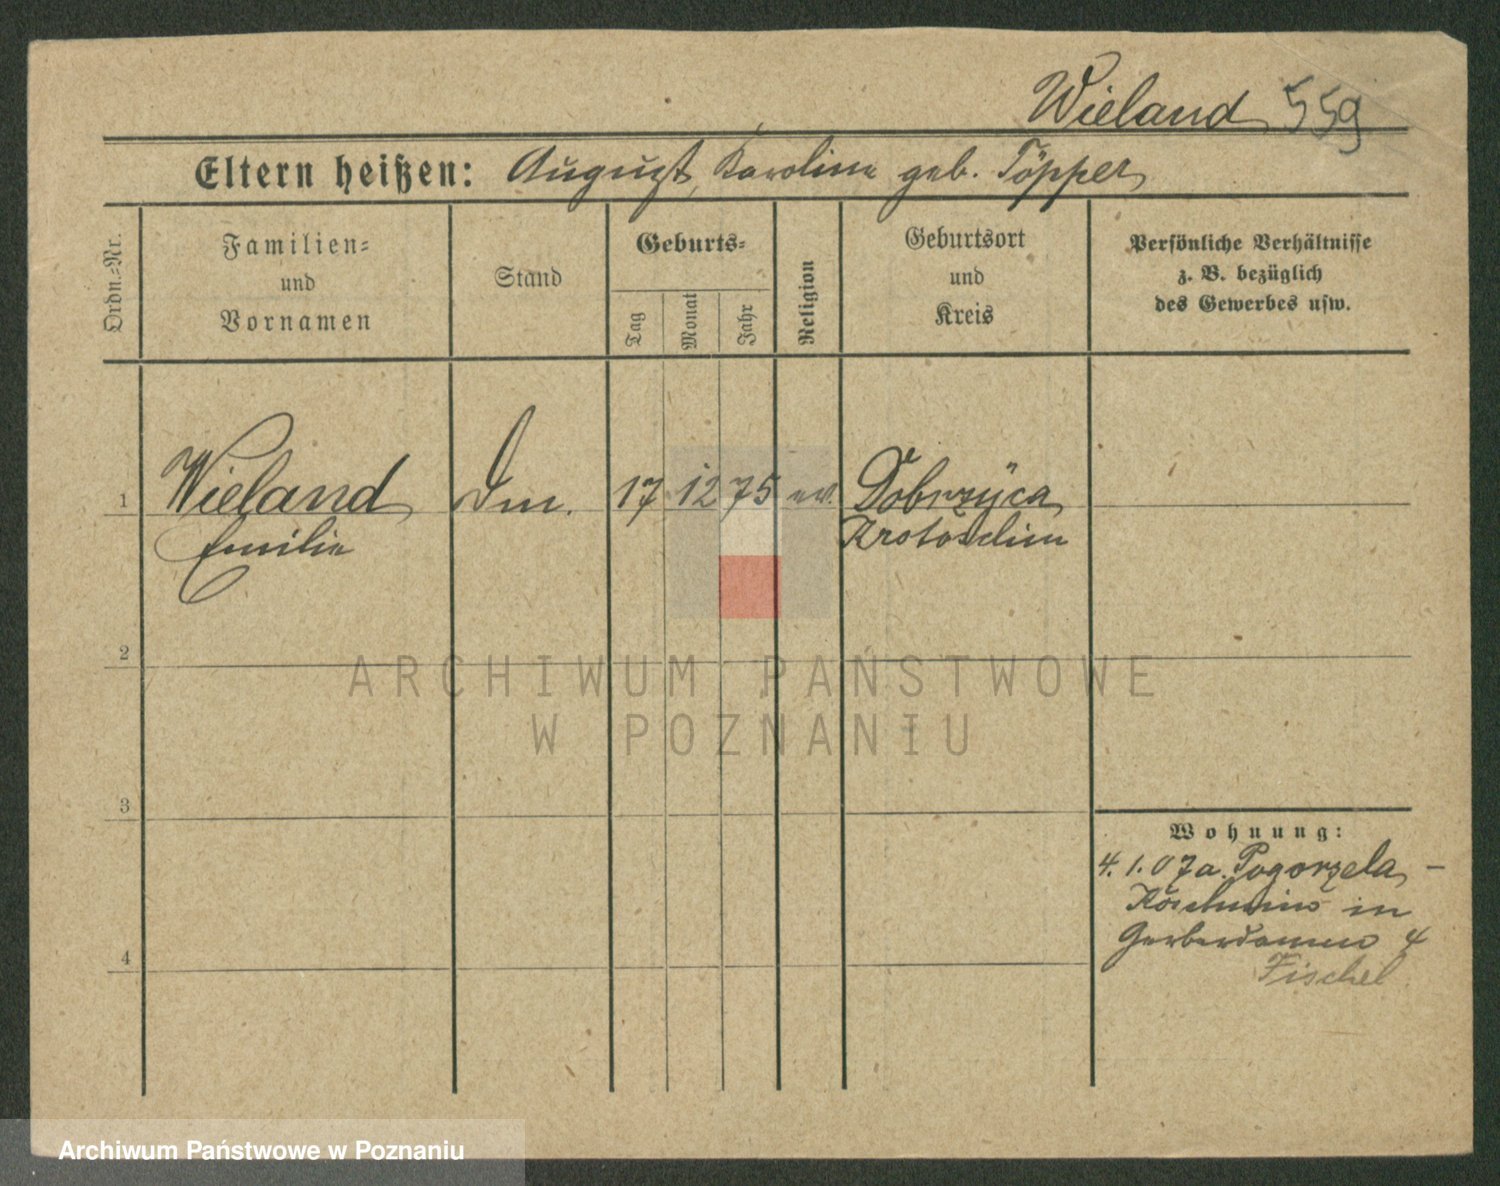 Wieland 559
Eltern heißen: August, Karoline geb. Töpper
Ordn.=Nr.
Familien=
und
Vornamen
Stand
Geburts=
Tag
Monat
Jahr
Religion
Geburtsort
und
Kreis
Persönliche Verhältnisse
z. B. bezüglich
des Gewerbes usw.
1 Wieland 17 12 75 ev. Dobrzyca
Emilie Krotoschin
2
ARCHIWUM PAŃSTWOWE
W POZNANIU
3
Wohnung:
4. 1. 07 a. Pogorzela –
Koschmin in
Gerberdamm 4
Fischel
4
Archiwum Państwowe w Poznaniu